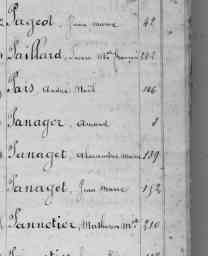 Pageot, Jean marie 42
Paillard, Pierre Mie françois 202
Pars André Noël 106
Panager, Amand 8
Panaget, Alexandre marie 139
Panaget, Jean Marie 152
Pannetier, Mathurin Mie 210